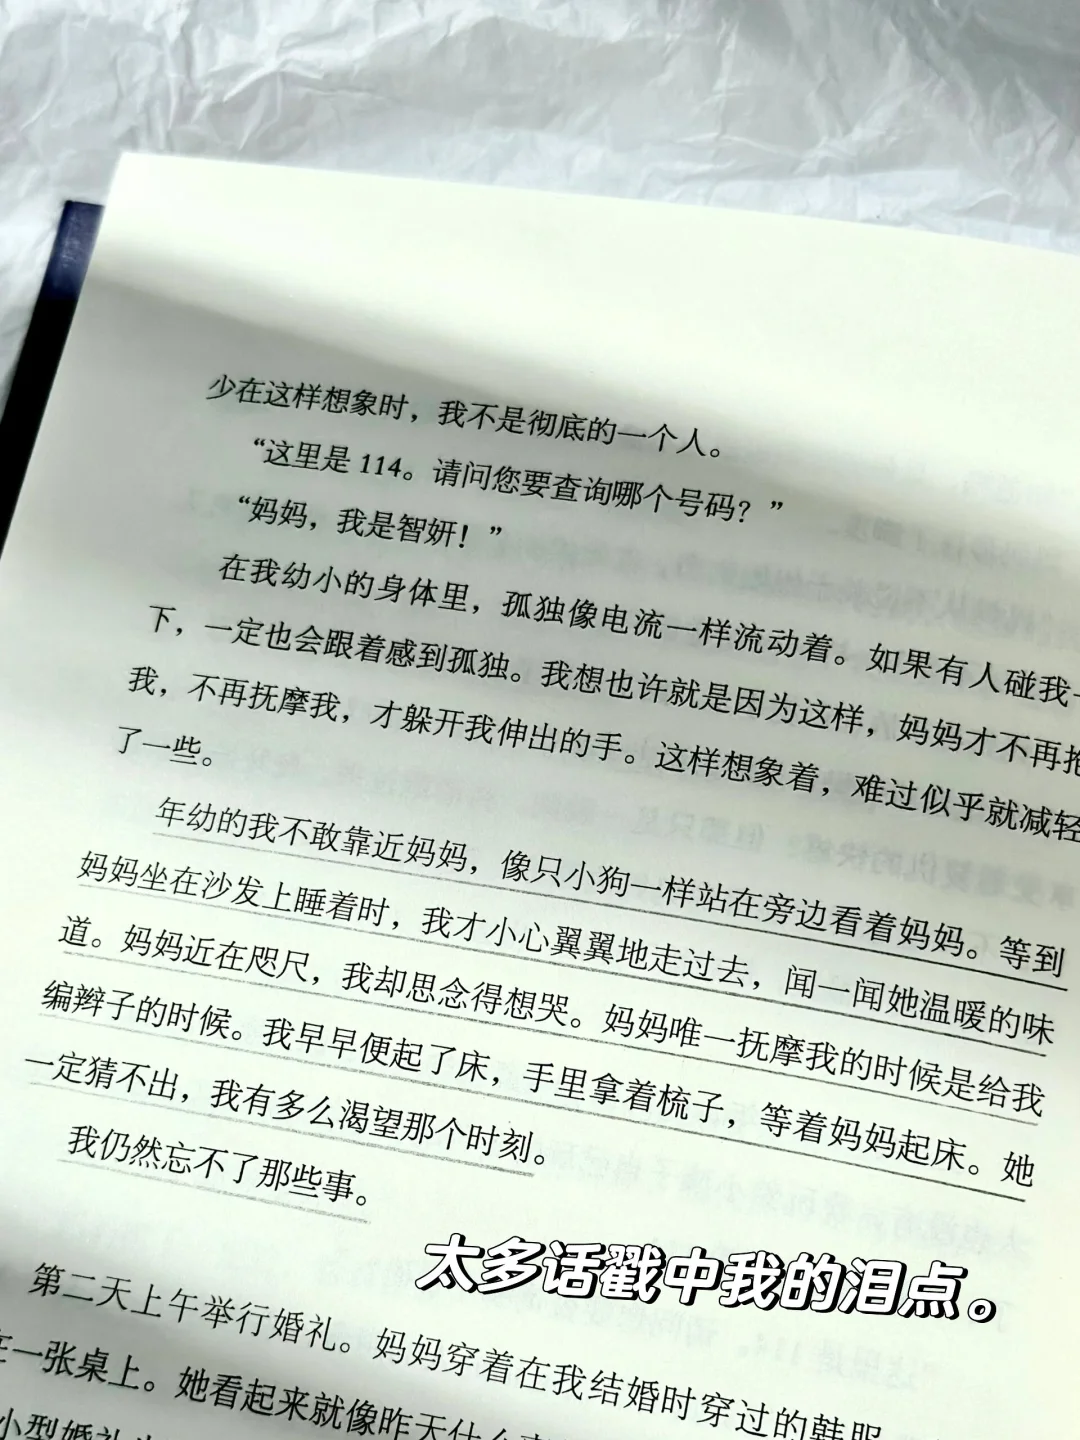 少在这样想象时，我不是彻底的一个人。
“这里是114。请问您要查询哪个号码？”
“妈妈，我是智妍！”
在我幼小的身体里，孤独像电流一样流动着。如果有人碰我一
下，一定也会跟着感到孤独。我想也许就是因为这样，妈妈才不再抱
我，不再抚摩我，才躲开我伸出的手。这样想象着，难过似乎就减轻
了一些。
年幼的我不敢靠近妈妈，像只小狗一样站在旁边看着妈妈。等到
妈妈坐在沙发上睡着时，我才小心翼翼地走过去，闻一闻她温暖的味
道。妈妈近在咫尺，我却思念得想哭。妈妈唯一抚摩我的时候是给我
编辫子的时候。我早早便起了床，手里拿着梳子，等着妈妈起床。她
一定猜不出，我有多么渴望那个时刻。
我仍然忘不了那些事。
太多话戳中我的泪点。
第二天上午举行婚礼。妈妈穿着在我结婚时穿过的韩服
在一张桌上。她看起来就像昨天什么
小型婚礼